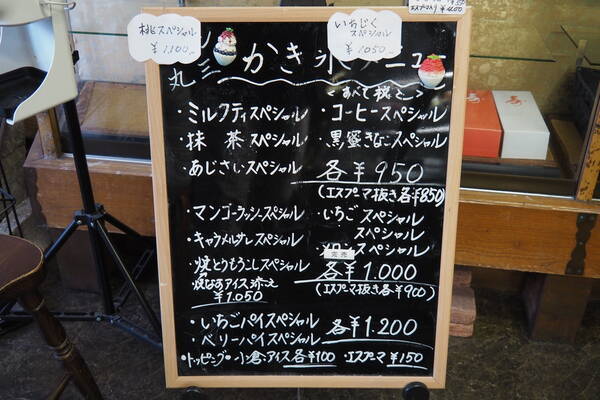 桃スペシャル
¥1,100
いちじく
スペシャル
¥1050
エスプーマ入り ¥400
丸三 かき氷メニュー
<すべて税込>
・ミルクティスペシャル ・コーヒースペシャル
・抹茶スペシャル ・黒蜜きなこスペシャル
・あじさいスペシャル 各¥950
(エスプーマ抜き各¥850)
・マンゴーラッシースペシャル ・いちごスペシャル
・キャラメルサレスペシャル スペシャル
・メロンスペシャル
完売
・焼とうもろこしスペシャル 各¥1.000
(エスプーマ抜き各¥900)
¥1.050
・いちごパイスペシャル
・ベリーパイスペシャル 各¥1.200
・トッピング・小倓・アイス各¥100 ・エスプーマ ¥150